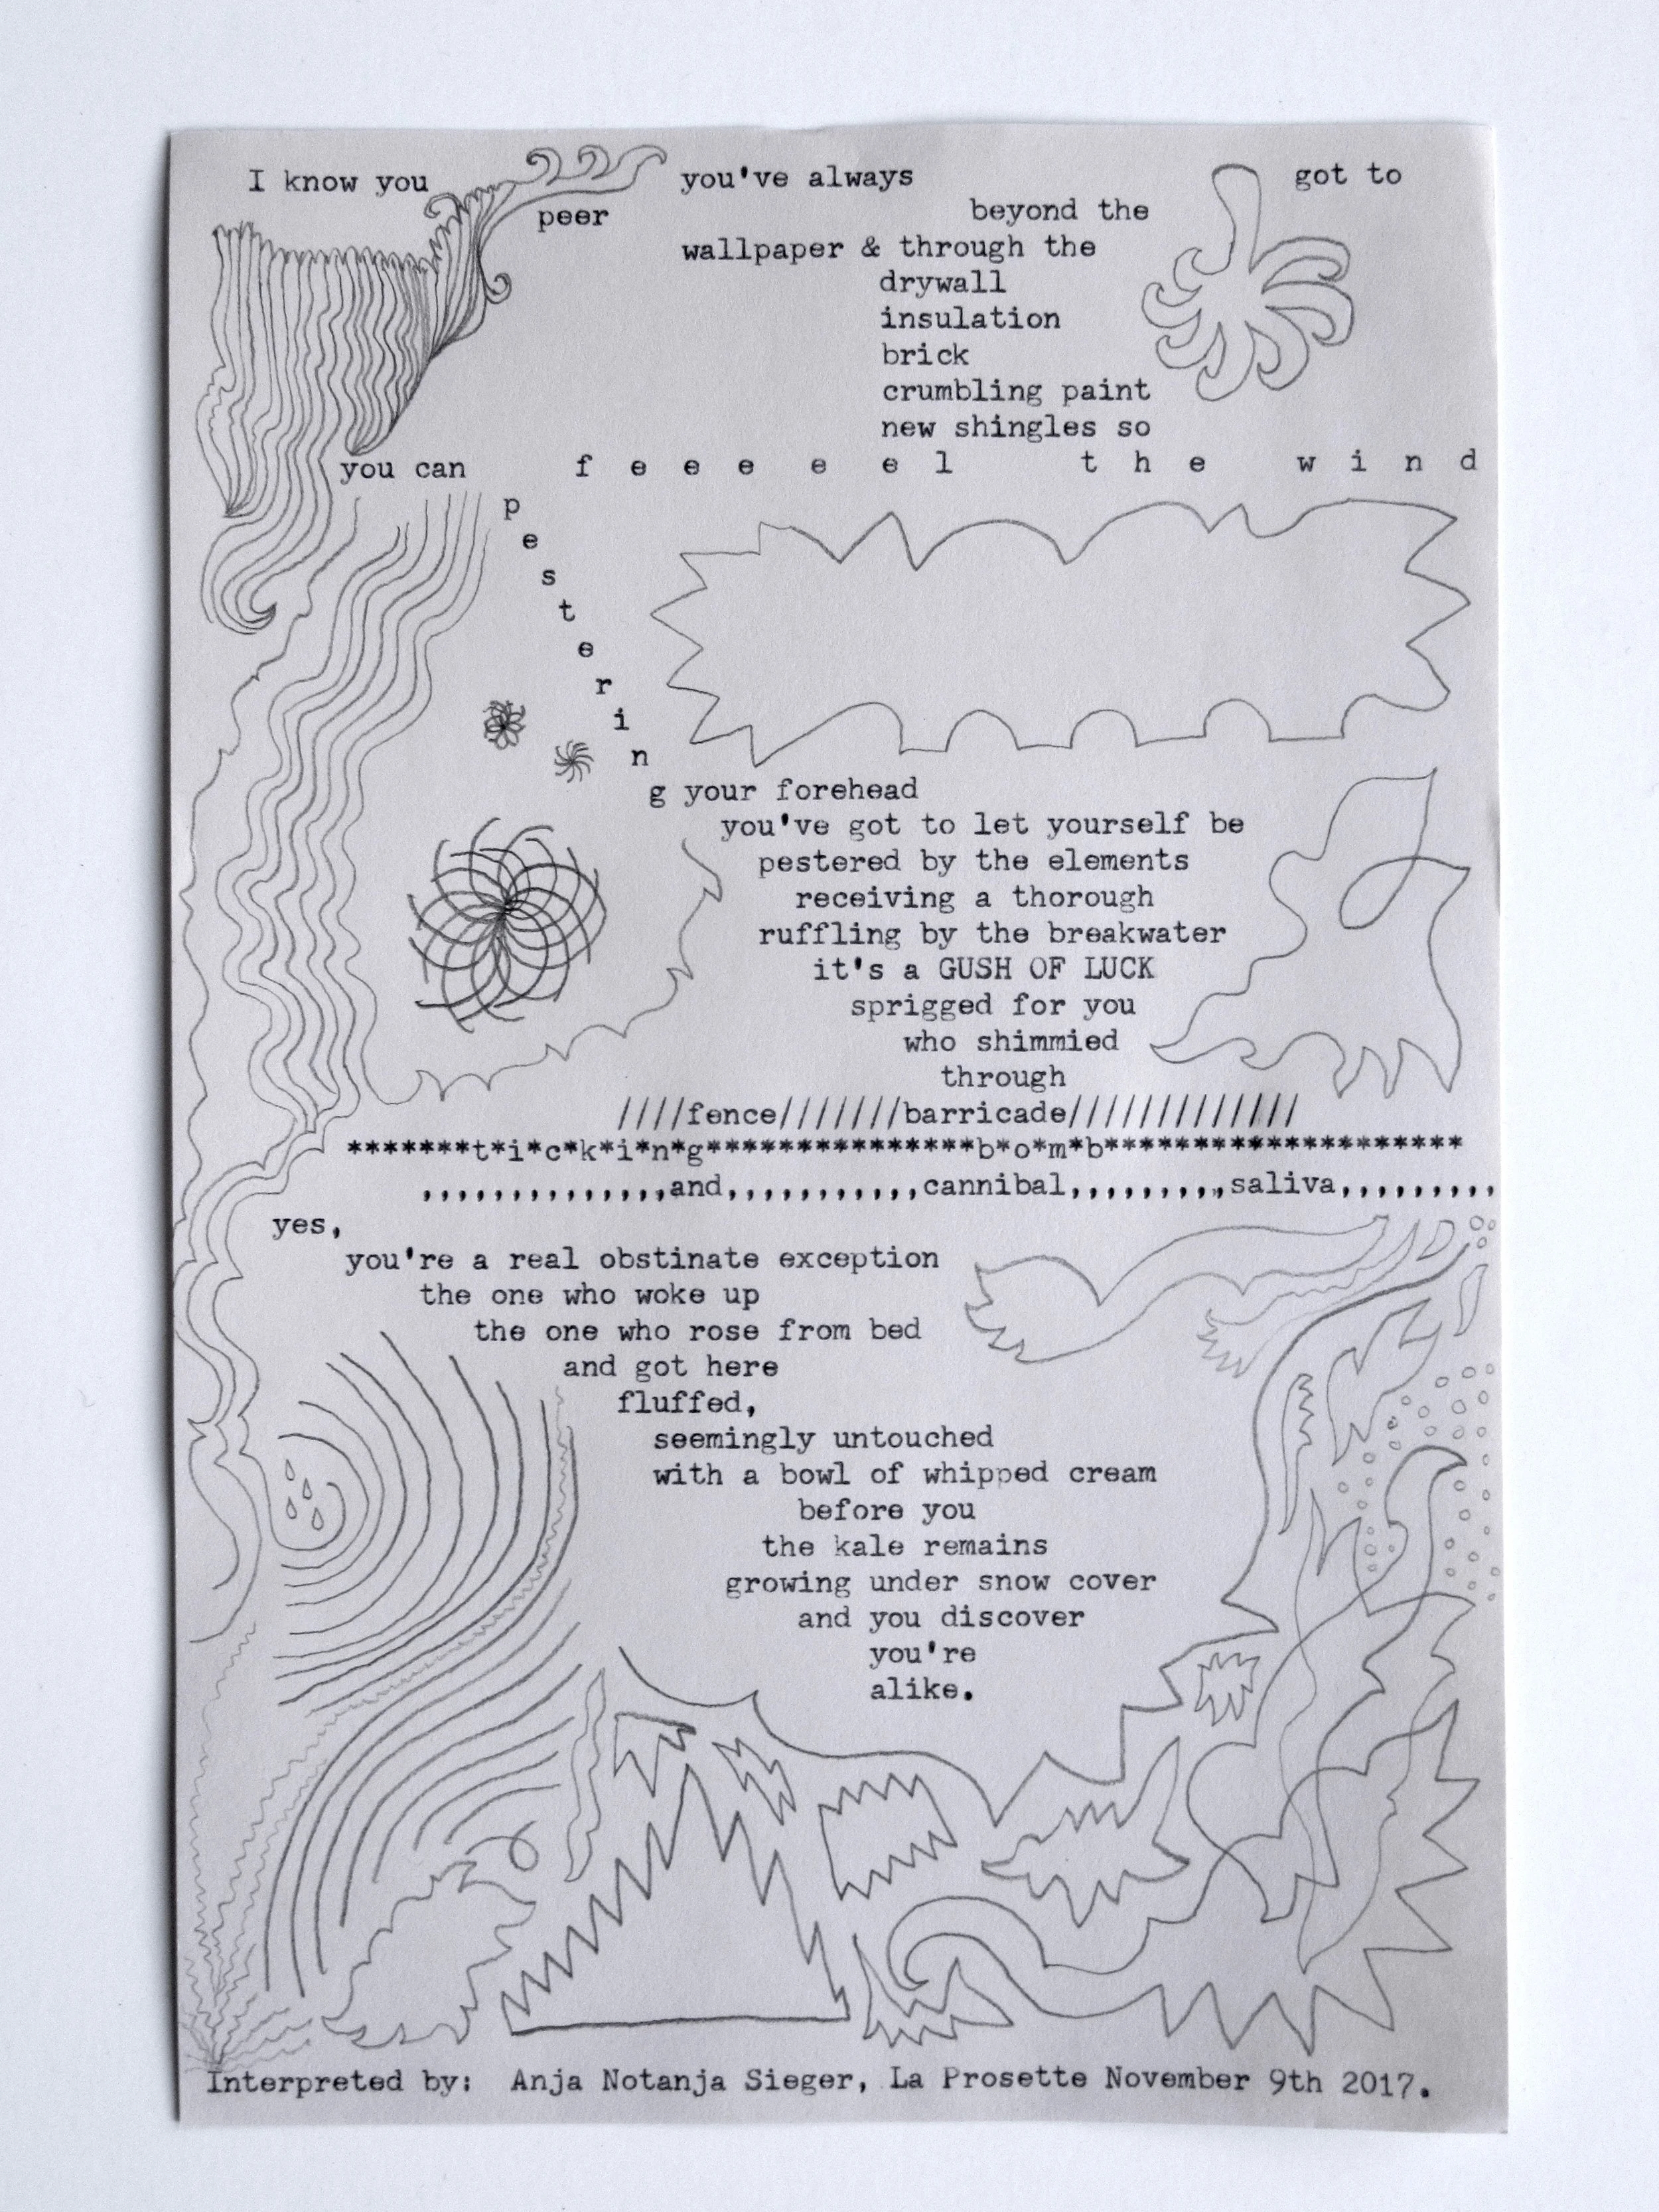 I know you you've always got to
peer beyond the
wallpaper & through the
drywall
insulation
brick
crumbling paint
new shingles so
you can f e e e e e l t h e w i n d
p
e
s
t
e
r
i
n
g your forehead
you've got to let yourself be
pestered by the elements
receiving a thorough
ruffling by the breakwater
it's a GUSH OF LUCK
sprigged for you
who shimmied
through
////fence///////barricade/////////////
*******t*i*c*k*i*n*g***************b*o*m*b********************
,,,,,,,,,,,,,,and,,,,,,,,,,,cannibal,,,,,,,,,saliva,,,,,,,,,
yes,
you're a real obstinate exception
the one who woke up
the one who rose from bed
and got here
fluffed,
seemingly untouched
with a bowl of whipped cream
before you
the kale remains
growing under snow cover
and you discover
you're
alike.
Interpreted by: Anja Notanja Sieger, La Prosette November 9th 2017.